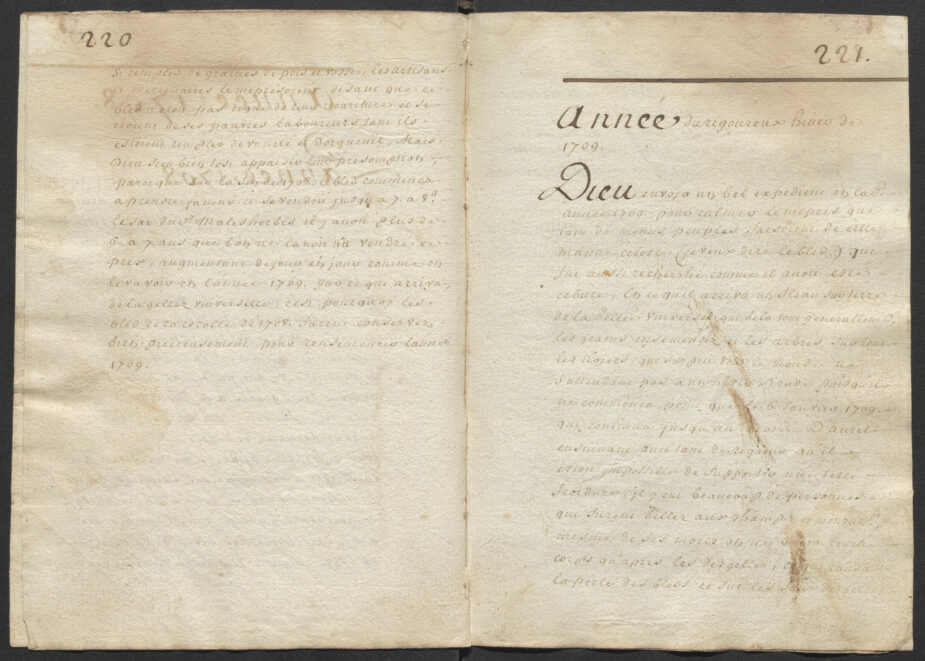 220
de graines de pois et vosse, les artisans
et mercenaires le meprisoient disant que ce
bled n'etoit pas digne de leur nourriture et se
de ses pauvres laboureurs tant ils
estoient remplis de vanité et d'orgueuil, Mais
Dieu sceu bien tost appaiser leur presomption,
parce que sur la fin de 1708. le bled commença
a prendre faveur et se vendou jusqu'a 7. a 8.
le sac du Malesherbes il y avoit plus de
6. a 7 ans que l'on ne l'avoit vu vendre ce
prix, augmentant de jour en jour comme on
le va voir en l'année 1709. par ce qui arriva,
de la gellée universelle, c'est pourquoy les
bled de la recolte de 1708. furent conservez
bien pretieusement pour l'année
1709.
221.
Année du rigoureux hiver de
1709.
Dieu envoya un bel expedient en la
année 1709. pour calmer le mepris que
tant de peuples faisoient de cette
manne celeste (je veux dire le bled) qui
fut aussi recherché comme il avoit esté
rebuté, En ce qu'il arriva un fleau sur terre
de la gellée universel qui gela tout
les grains ensemencer et les arbres, sur tout
les Noiers, qui surprit tout le monde ne
s'attendant pas a un hiver si rude puisqu'il
ne commença que le 6 Janvier 1709.
qui continua jusqu'au D'avril
ensuivant avec tant de rigueur, qu'il
estoit impossible de supporter une telle
froidure, il y eut beaucoup de personnes
que furent gellez aux champs et
mesme de ses morts on ne
corps qu'après les degelles, ce qui causa
la perte des bleds ce fut les